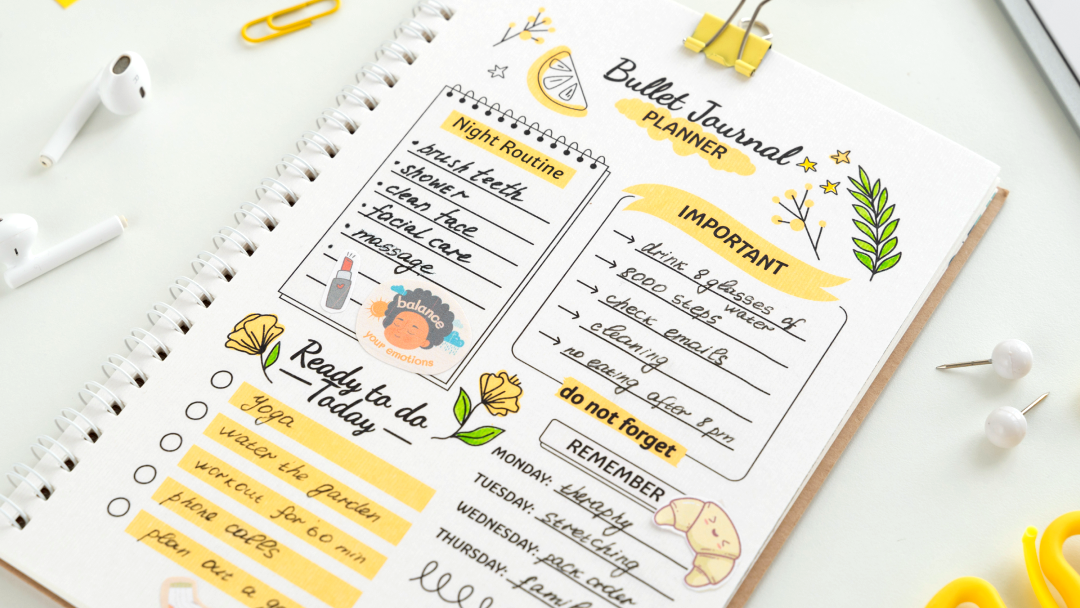 Bullet Journal
PLANNER
Night Routine
• brush teeth
• shower
• clean face
• facial care
• massage
•
balance
your emotions
IMPORTANT
→ drink 8 glasses of
water
→ 8000 steps
→ check emails
→ cleaning
→ no eating after 8 pm
do not forget
Ready to do
— Today —
yoga
water the garden
workout for 60 min
phone calls
plan out a
REMEMBER
MONDAY: theraphy
TUESDAY: stretching
WEDNESDAY: pack order
THURSDAY: